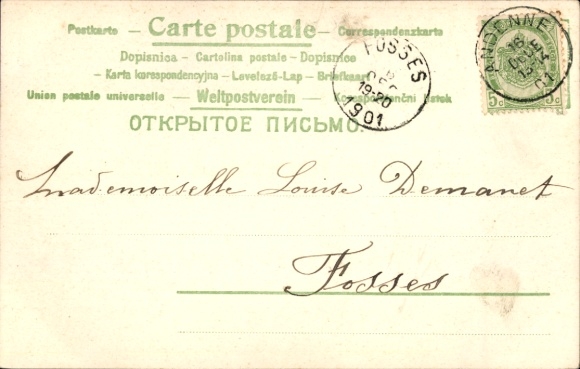 Postkarte – Carte postale – Correspondenzkarte
Dopisnica – Cartolina postale – Dopisnice
– Karta korespondencyjna – Levelező-Lap – Briefkaart
Union postale universelle – Weltpostverein –
ОТКРЫТОЕ ПИСЬМО.
FOSSES
DEC
19-20
1901
ANDENNE
5c 5c
Mademoiselle Louise Demanet
Fosses